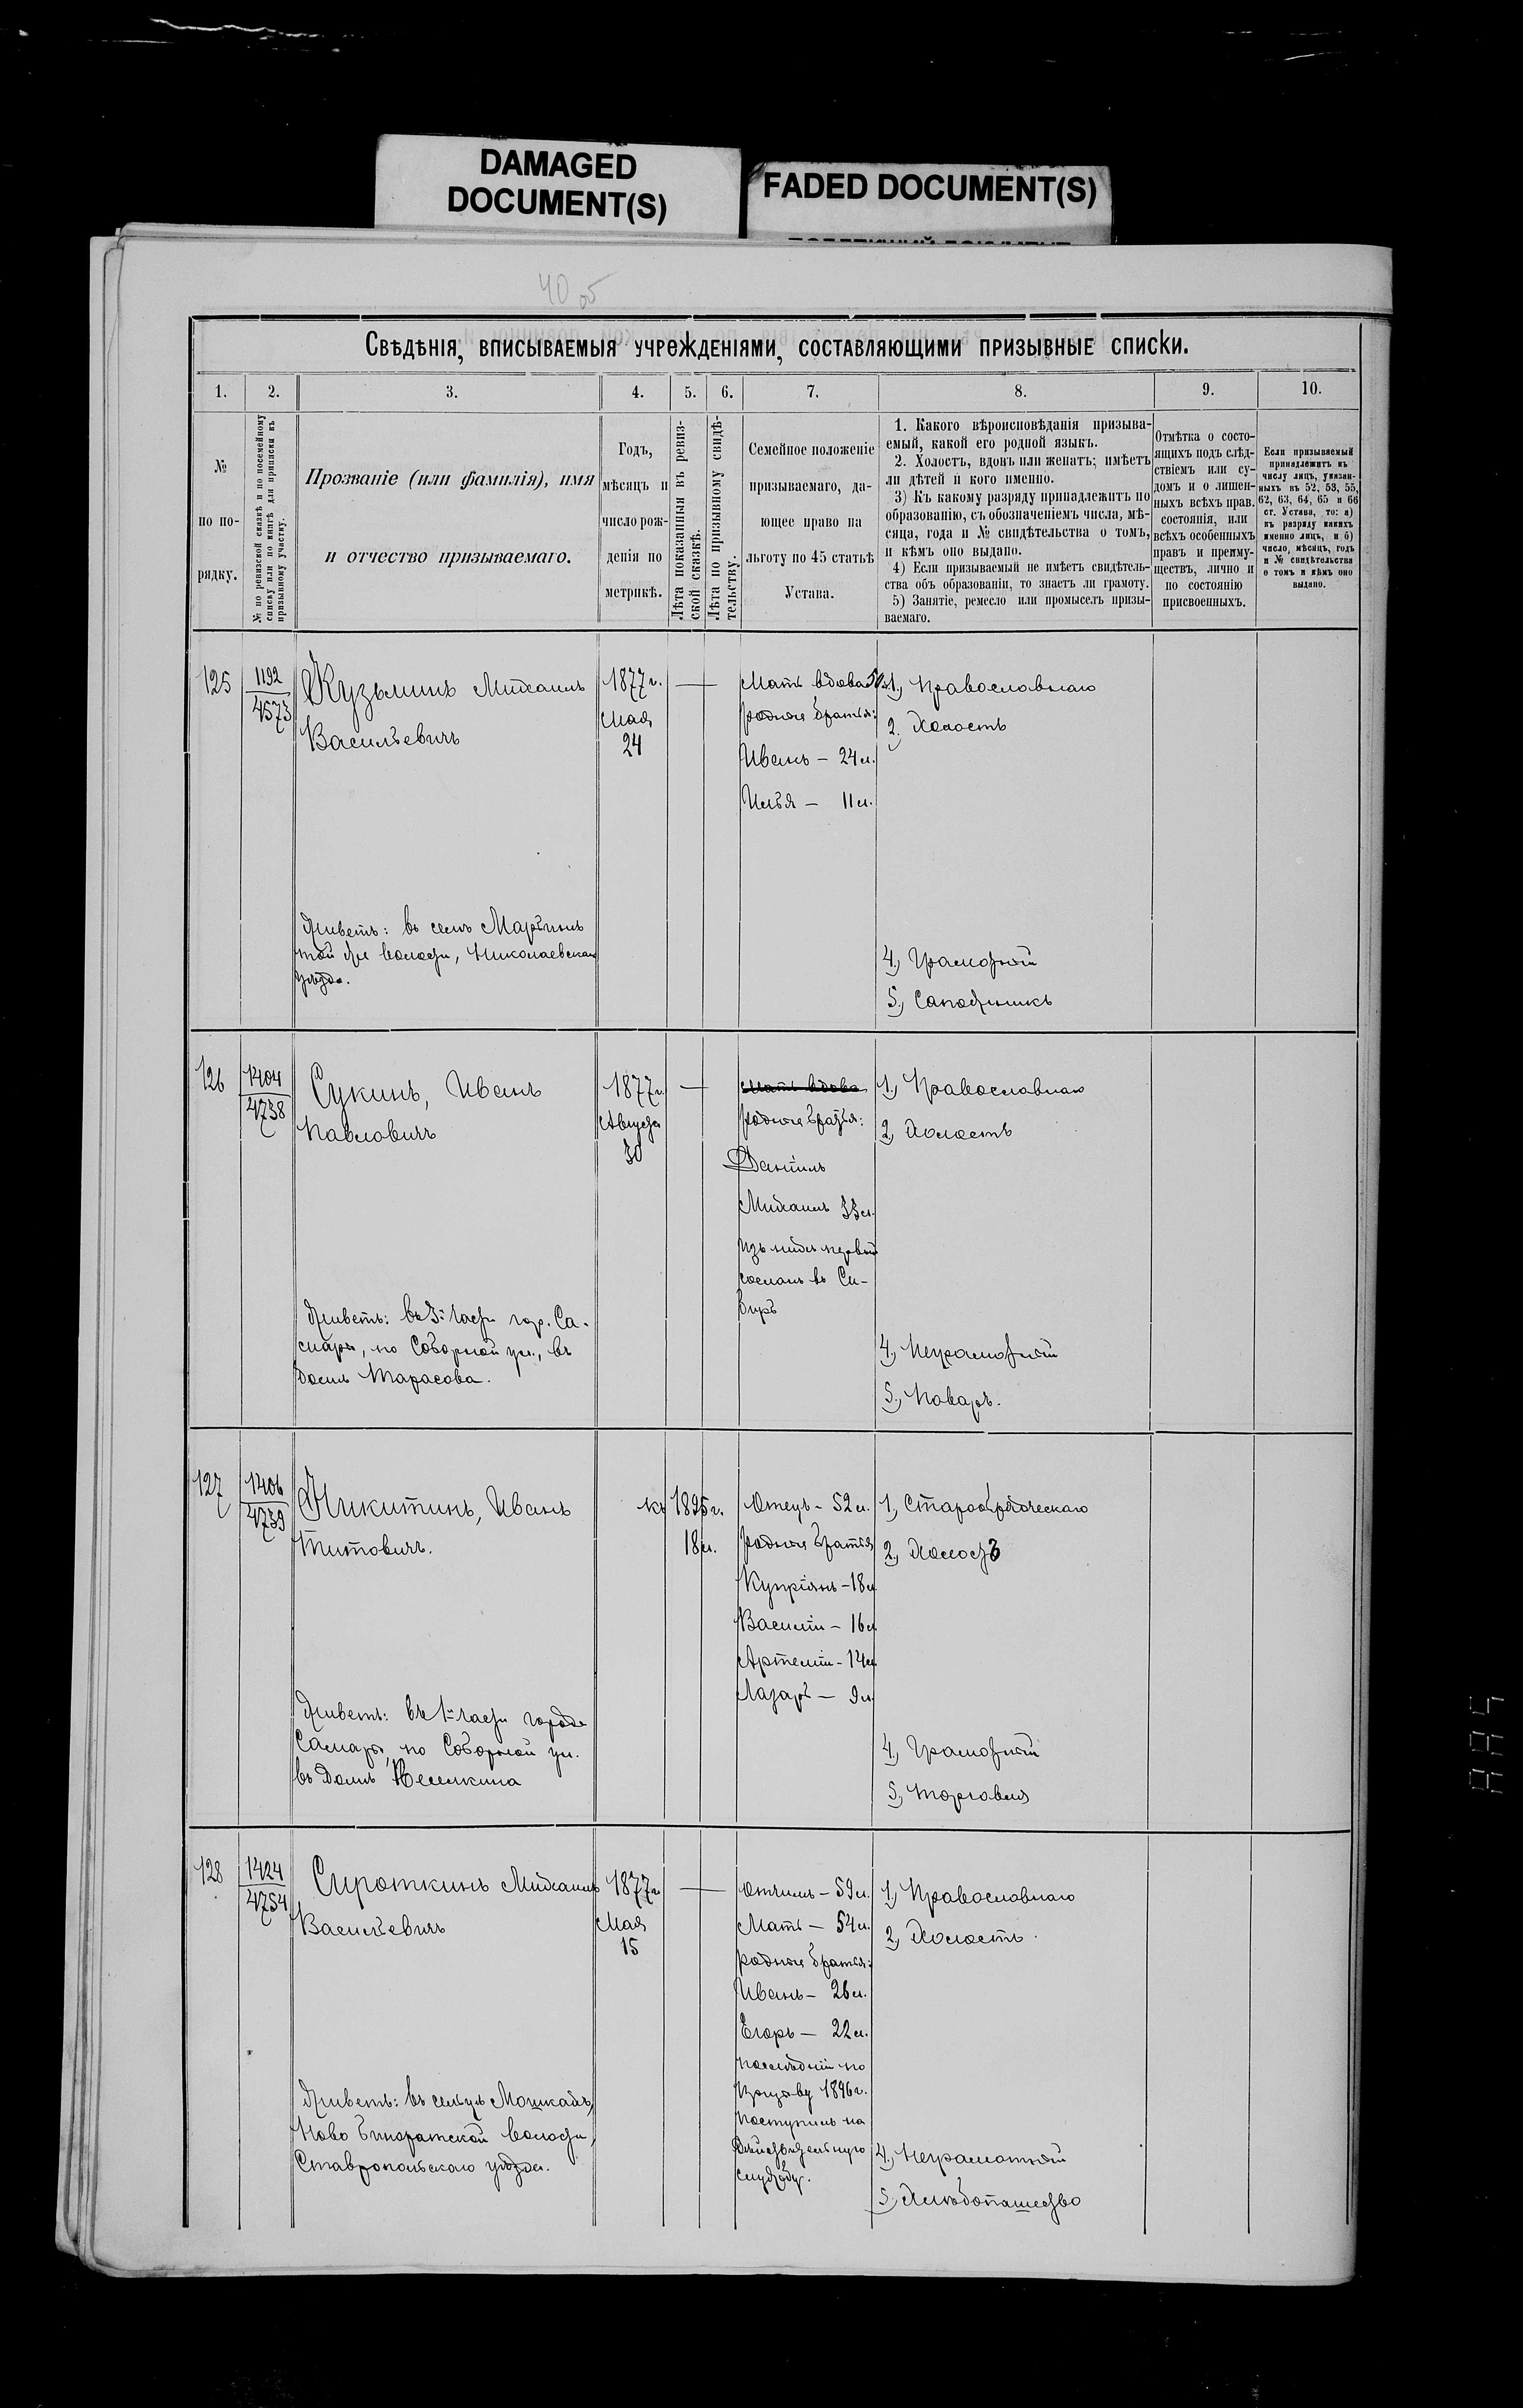 DAMAGED
DOCUMENT(S)
FADED DOCUMENT(S)
40 об
Свѣдѣнія, вписываемыя учрежденіями, составляющими призывные списки.
1. 2. 3. 4. 5. 6. 7. 8. 9. 10.
№
по по-
рядку.
№ по ревизской сказкѣ и по посемейному
списку или по книгѣ для приписки къ
призывному участку.
Прозваніе (или фамилія), имя
и отчество призываемаго.
Годъ,
мѣсяцъ и
число рож-
денія по
метрикѣ.
Лѣта показанныя въ ревиз-
ской сказкѣ.
Лѣта по призывному свидѣ-
тельству.
Семейное положеніе
призываемаго, да-
ющее право на
льготу по 45 статьѣ
Устава.
1. Какого вѣроисповѣданія призыва-
емый, какой его родной языкъ.
2. Холостъ, вдовъ или женатъ; имѣетъ
ли дѣтей и кого именно.
3) Къ какому разряду принадлежитъ по
образованію, съ обозначеніемъ числа, мѣ-
сяца, года и № свидѣтельства о томъ,
и кѣмъ оно выдано.
4) Если призываемый не имѣетъ свидѣтель-
ства объ образованіи, то знаетъ ли грамоту.
5) Занятіе, ремесло или промыселъ призы-
ваемаго.
Отмѣтка о состо-
ящихъ подъ слѣд-
ствіемъ или су-
домъ и о лишен-
ныхъ всѣхъ прав.
состоянія, или
всѣхъ особенныхъ
правъ и преиму-
ществъ, лично и
по состоянію
присвоенныхъ.
Если призываемый
принадлежитъ къ
числу лицъ, указан-
ныхъ въ 52, 53, 55,
62, 63, 64, 65 и 66
ст. Устава, то: а)
къ разряду какихъ
именно лицъ, и б)
число, мѣсяцъ, годъ
и № свидѣтельства
о томъ и кѣмъ оно
выдано.
125
1192
4573
Кузьминъ Михаилъ
Васильевичъ
1877 г.
Мая
24
Мать вдова
родные братья:
Иванъ – 24 л.
Илья – 11 л.
1, Православнаго
2, Холостъ
Живетъ: въ селѣ Марьинѣ
той же волости, Николаевскаго
уѣзда.
4, Грамотный
5, Сапожникъ
126
1404
4738
Сукинъ, Иванъ
Павловичъ
1877 г.
Августа
30
Мать вдова
родные братья:
Данiилъ
Михаилъ 33 л.
изъ нихъ первый
сосланъ въ Си-
бирь
1, Православнаго
2, Холостъ
Живетъ: въ 3й части гор. Са-
мары, по Соборной ул., въ
домѣ Тарасова.
4, Неграмотный
5, Поваръ.
127
1406
4739
Никитинъ, Иванъ
Титовичъ.
къ 1895 г.
18 л.
Отецъ – 52 л.
родные братья
Купріянъ – 18 л.
Василій – 16 л.
Артемій – 14 л.
Лазарь – 9 л.
1, Старообрядческаго
2, Холостъ
Живетъ: въ 1й части города
Самары, по Соборной ул.
въ домѣ
4, Грамотный
5, Торговля
128
1424
4754
Сироткинъ Михаилъ
Васильевичъ
1877 г.
Мая
15
Отчимъ – 59 л.
Мать – 54 л.
родные братья:
Иванъ – 26 л.
Егоръ – 22 л.
послѣдній по
призыву 1896 г.
поступилъ на
дѣйствительную
службу.
1, Православнаго
2, Холостъ.
Живетъ: въ сельцѣ Мошкахъ,
Ново Бинарадской волости,
Ставропольскаго уѣзда.
4, Неграмотный
5, Хлѣбопашество